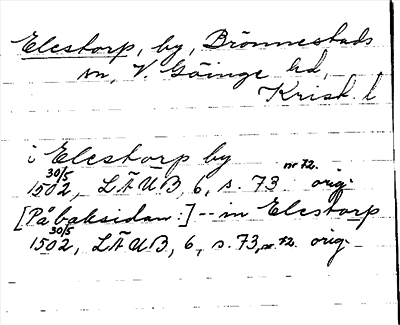 Elestorp, by, Brönnestads
sn, V. Göinge hd,
Krist. l
i Elestorp by
30/5 1502, LÄUB, 6, s. 73 nr 72. orig.
[På baksidan:] -- in Elestorp
30/5 1502, LÄUB, 6, s. 73, nr 72. orig.